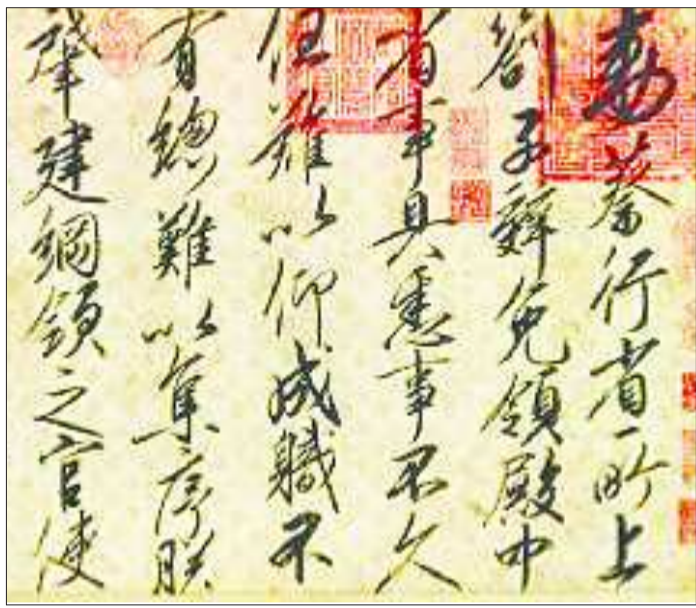 勅蔡行省所上
劄子辭免領殿中
省事具悉事不久
任難以仰成職不
有總難以集序朕
肇建綱領之官使